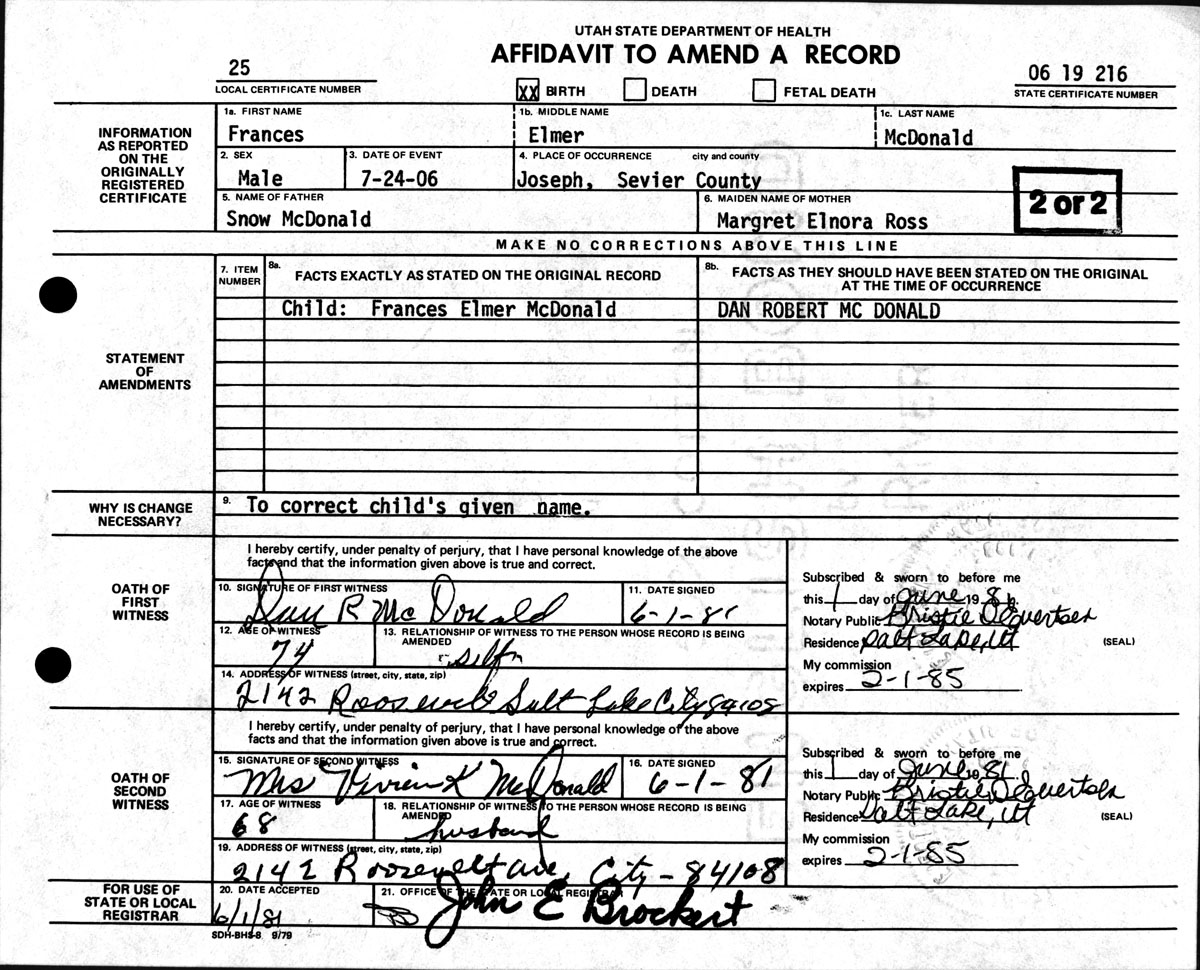 UTAH STATE DEPARTMENT OF HEALTH
AFFIDAVIT TO AMEND A RECORD
25
LOCAL CERTIFICATE NUMBER
XX BIRTH DEATH FETAL DEATH
06 19 216
STATE CERTIFICATE NUMBER
INFORMATION AS REPORTED ON THE ORIGINALLY REGISTERED CERTIFICATE
1a. FIRST NAME 1b. MIDDLE NAME 1c. LAST NAME
Frances Elmer McDonald
2. SEX 3. DATE OF EVENT 4. PLACE OF OCCURRENCE city and county
Male 7-24-06 Joseph, Sevier County
5. NAME OF FATHER 6. MAIDEN NAME OF MOTHER
Snow McDonald Margret Elnora Ross
2 or 2
MAKE NO CORRECTIONS ABOVE THIS LINE
STATEMENT OF AMENDMENTS
7. ITEM NUMBER
8a. FACTS EXACTLY AS STATED ON THE ORIGINAL RECORD
8b. FACTS AS THEY SHOULD HAVE BEEN STATED ON THE ORIGINAL
AT THE TIME OF OCCURRENCE
Child: Frances Elmer McDonald DAN ROBERT MC DONALD
WHY IS CHANGE NECESSARY?
9. To correct child's given name.
OATH OF FIRST WITNESS
I hereby certify, under penalty of perjury, that I have personal knowledge of the above
facts and that the information given above is true and correct.
10. SIGNATURE OF FIRST WITNESS 11. DATE SIGNED
Dan R McDonald 6-1-81
12. AGE OF WITNESS 13. RELATIONSHIP OF WITNESS TO THE PERSON WHOSE RECORD IS BEING AMENDED
74 self
14. ADDRESS OF WITNESS (street, city, state, zip)
2142 Roosevelt Salt Lake City 84108
Subscribed & sworn to before me
this 1 day of June 1981
Notary Public
Residence Salt Lake, Ut (SEAL)
My commission
expires 2-1-85
OATH OF SECOND WITNESS
I hereby certify, under penalty of perjury, that I have personal knowledge of the above
facts and that the information given above is true and correct.
15. SIGNATURE OF SECOND WITNESS 16. DATE SIGNED
Mrs Vivian K McDonald 6-1-81
17. AGE OF WITNESS 18. RELATIONSHIP OF WITNESS TO THE PERSON WHOSE RECORD IS BEING AMENDED
68 husband
19. ADDRESS OF WITNESS (street, city, state, zip)
2142 Roosevelt ave, City - 84108
Subscribed & sworn to before me
this 1 day of June 1981
Notary Public
Residence Salt Lake, Ut (SEAL)
My commission
expires 2-1-85
FOR USE OF STATE OR LOCAL REGISTRAR
20. DATE ACCEPTED 21. OFFICE OF THE STATE OR LOCAL REGISTRAR
6/1/81 John E Brockert
SDH-BHS-8 9/79